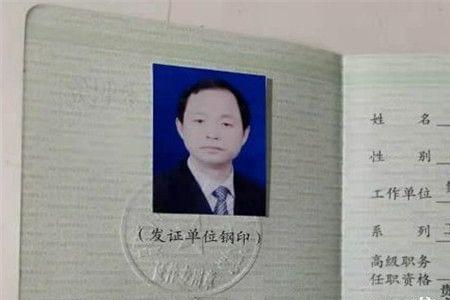 (发证单位钢印)
姓名
性别
工作单位
系列
高级职务
任职资格